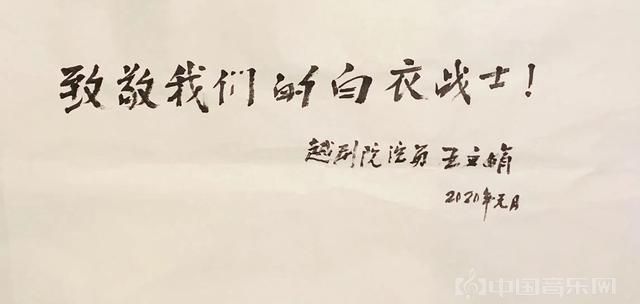 致敬我们的白衣战士！
越剧院演员 王文娟
2020年元月
中国音乐网